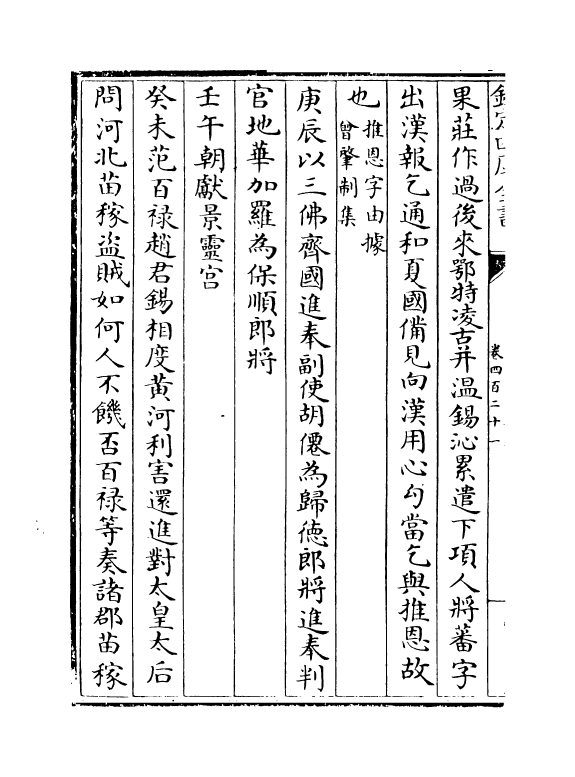 欽定四庫全書
卷四百二十一
果莊作過後來鄂特凌古并溫錫沁累遣下項人將蕃字
出漢報乞通和夏國備見向漢用心勾當乞與推恩故
也推恩字由據
曾肇制集
庚辰以三佛齊國進奉副使胡僊為歸德郎將進奉判
官地華加羅為保順郎將
壬午朝獻景靈宮
癸未范百祿趙君錫相度黃河利害還進對太皇太后
問河北苗稼盜賊如何人不饑否百祿等奏諸郡苗稼